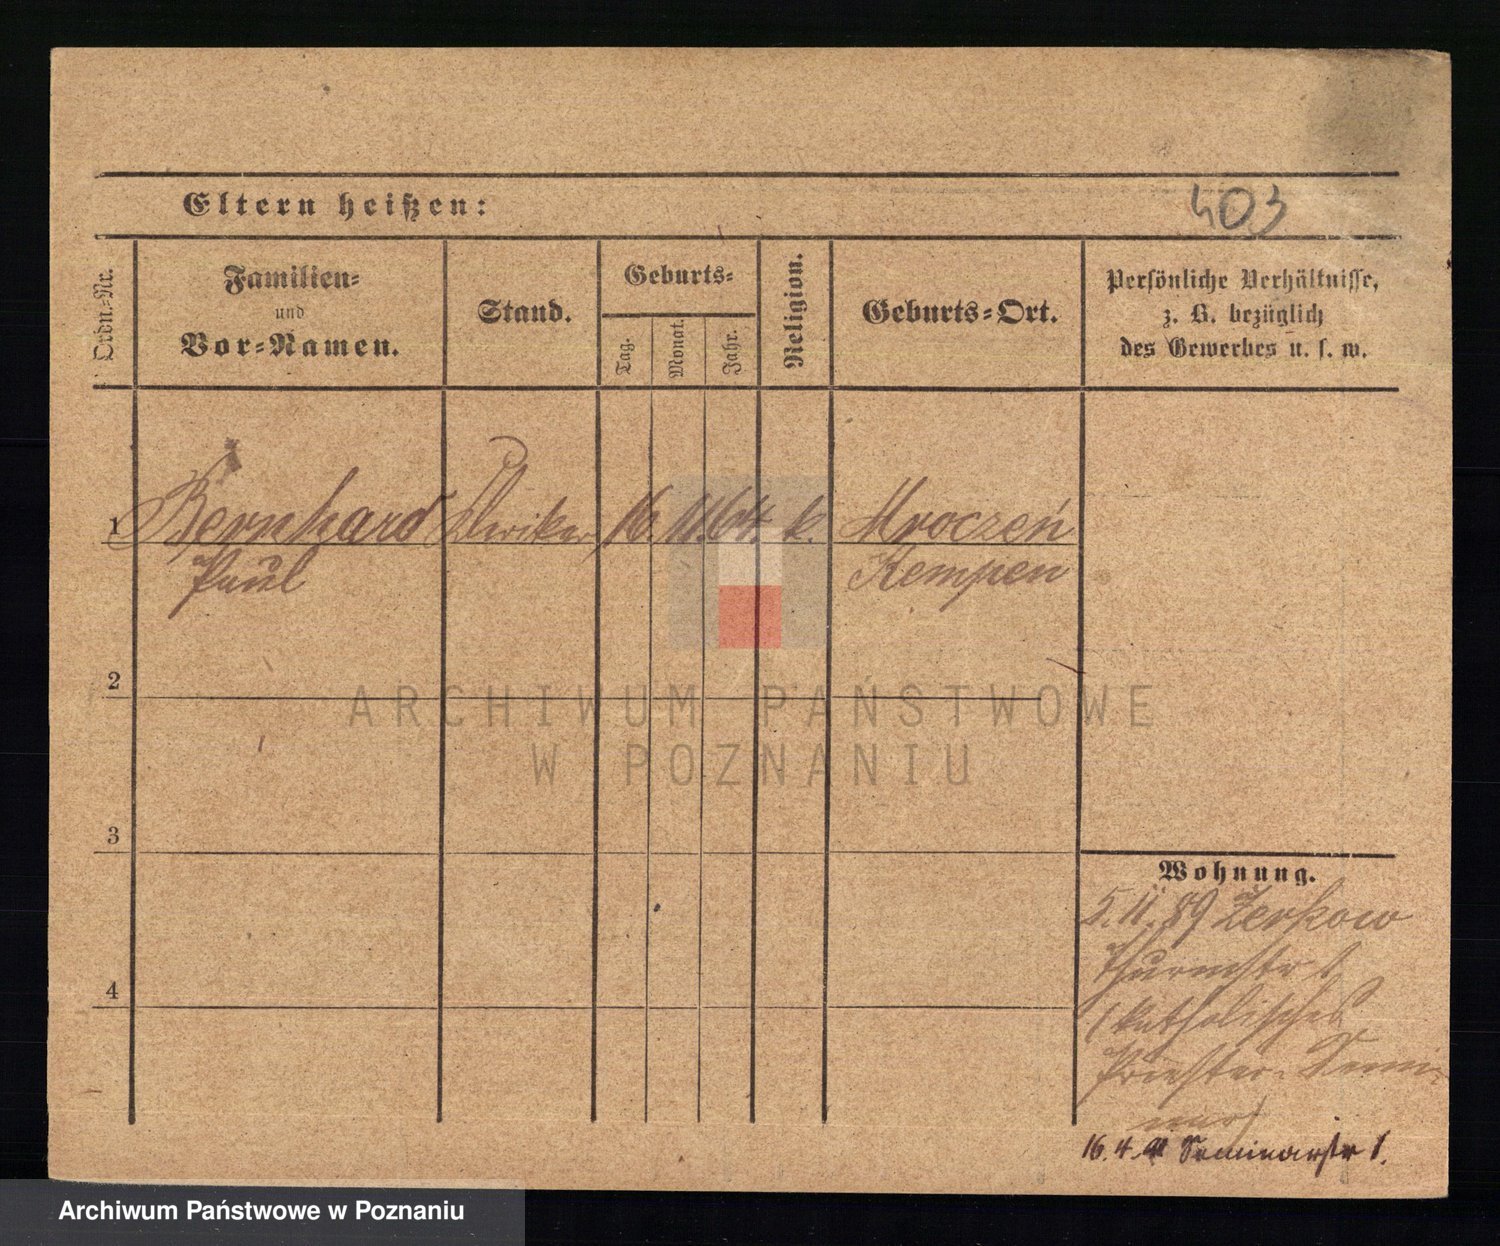 Eltern heißen:
403
Ordn.-Nr.
Familien-
und
Vor-Namen.
Stand.
Geburts-
Tag.
Monat.
Jahr.
Religion.
Geburts-Ort.
Persönliche Verhältnisse,
z. B. bezüglich
des Gewerbes u. s. w.
1 Bernhard Kleriker 16. 11. 64. k. Mroczeń
Paul Kempen
2
3
4
Wohnung.
5. 11. 89 Zerkow
Thurmstr 1
(katholisches
Priester-Semi-
nar)
16. 4. Seminarstr 1.
ARCHIWUM PAŃSTWOWE
W POZNANIU
Archiwum Państwowe w Poznaniu